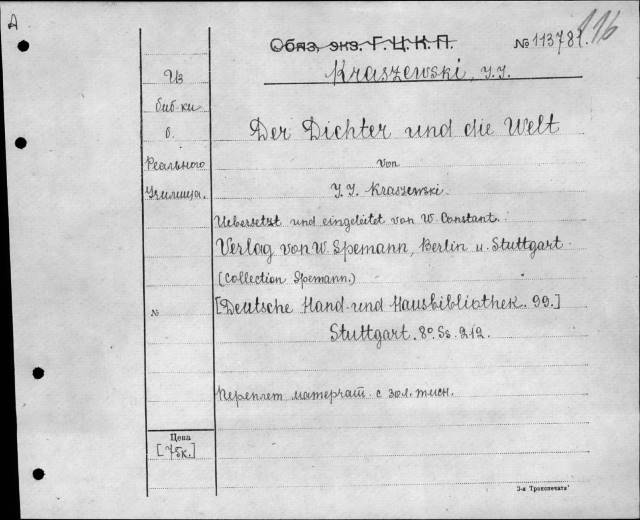 А
Обяз. экз. Г.Ц.К.П.
№ 113781.
116
Kraszewski, J. J.
Из
биб-ки
б.
Реального
Училища.
Der Dichter und die Welt
von
J. J. Kraszewski.
Uebersetzt und eingeleitet von W. Constant.
Verlag von W. Spemann, Berlin u. Stuttgart.
(Collection Spemann.)
№
[Deutsche Hand- und Hausbibliothek. 99.]
Stuttgart. 8º. Ss. 212.
Переплет матерчат. с зол. тисн.
Цена
[75к.]
3-я Транспечать